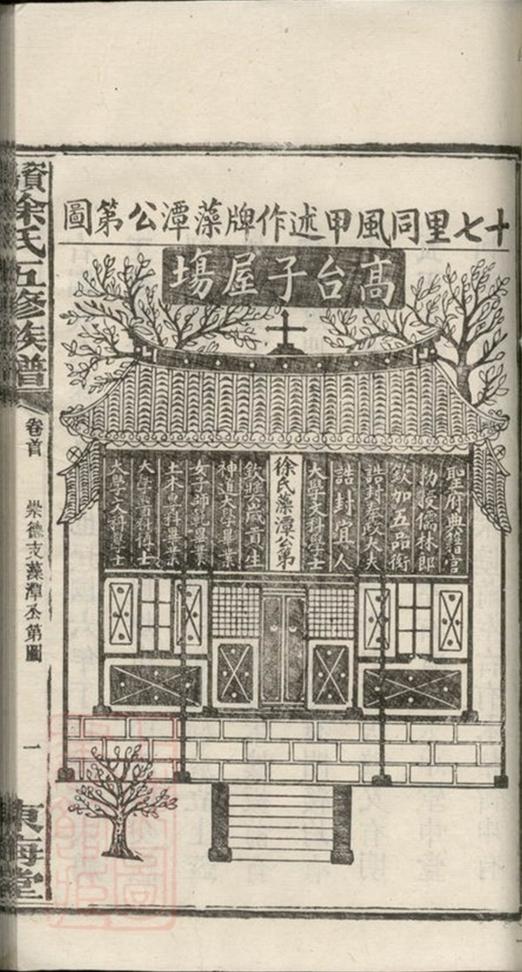 十七里同風甲述作牌藻潭公第圖
髙台子屋塲
聖府典籍官
初授儒林郎
欽加五品銜
誥封奉政大夫
誥封宜人
大學文科學士
徐氏藻潭公第
欽賜歲貢生
神道大學畢業
女子師範畢業
土木專科畢業
大學
科博士
大學工科學士
資徐氏五修族譜
卷首
崇德支藻潭公第圖
一
東海堂